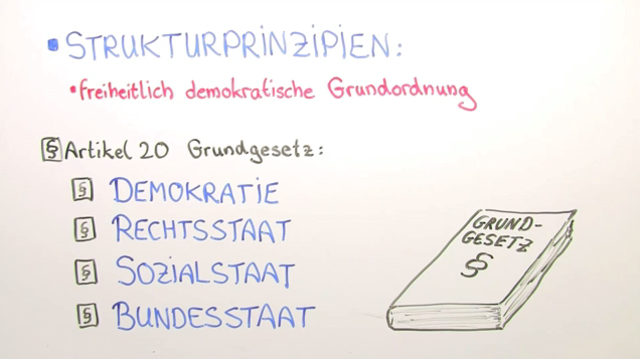 • STRUKTURPRINZIPIEN:
• freiheitlich demokratische Grundordnung
§ Artikel 20 Grundgesetz:
§ DEMOKRATIE
§ RECHTSSTAAT
§ SOZIALSTAAT
§ BUNDESSTAAT
GRUND-
GESETZ
§